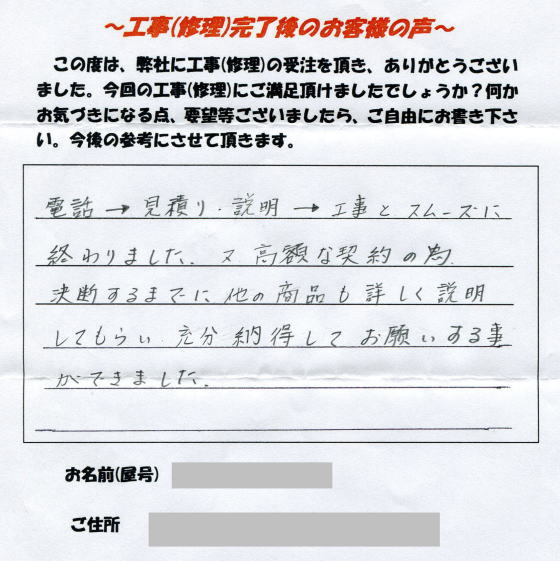 ～工事(修理)完了後のお客様の声～
この度は、弊社に工事(修理)の受注を頂き、ありがとうござい
ました。今回の工事(修理)にご満足頂けましたでしょうか？何か
お気づきになる点、要望等ございましたら、ご自由にお書き下さ
い。今後の参考にさせて頂きます。
電話→見積り・説明→工事とスムーズに
終わりました。又、高額な契約の為、
決断するまでに他の商品も詳しく説明
してもらい、充分納得してお願いする事
ができました。
お名前(屋号)
ご住所